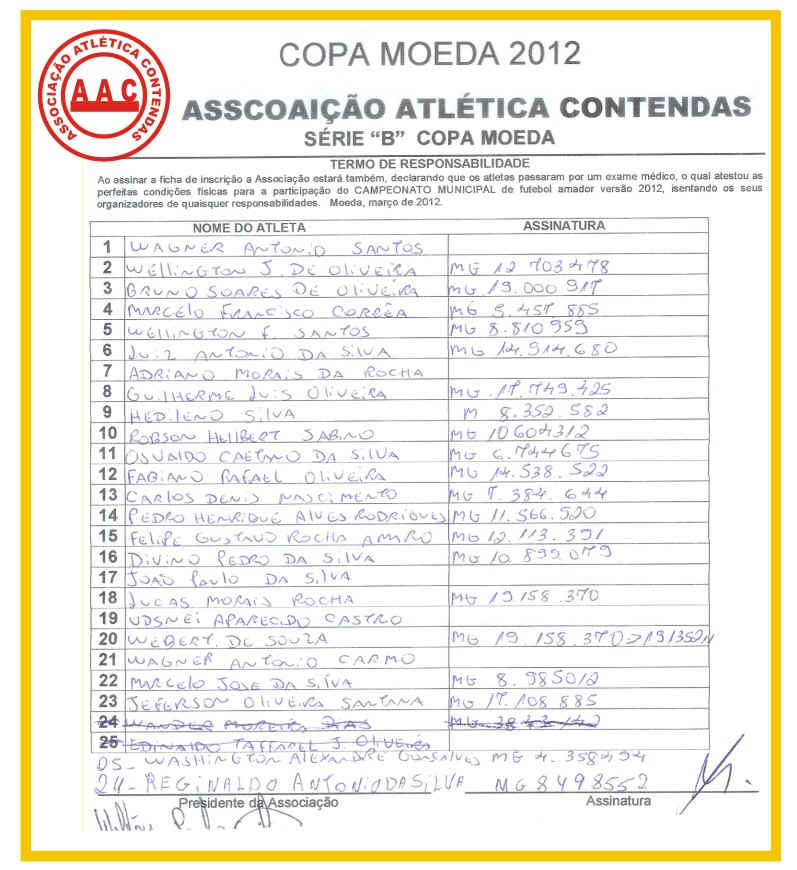 ASSOCIAÇÃO ATLÉTICA CONTENDAS
AAC
COPA MOEDA 2012
ASSCOAIÇÃO ATLÉTICA CONTENDAS
SÉRIE “B” COPA MOEDA
TERMO DE RESPONSABILIDADE
Ao assinar a ficha de inscrição a Associação estará também, declarando que os atletas passaram por um exame médico, o qual atestou as
perfeitas condições físicas para a participação do CAMPEONATO MUNICIPAL de futebol amador versão 2012, isentando os seus
organizadores de quaisquer responsabilidades. Moeda, março de 2012.
NOME DO ATLETA ASSINATURA
1 WAGNER ANTONIO SANTOS
2 WELLINGTON J. DE OLIVEIRA MG 12 703 478
3 BRUNO SOARES DE OLIVEIRA MG 19.000 917
4 MARCELO FRANCISCO CORRÊA MG 5.457 885
5 WELLINGTON F. SANTOS MG 8.810 959
6 LUIZ ANTONIO DA SILVA MG 14.914.680
7 ADRIANO MORAIS DA ROCHA
8 GUILHERME LUIS OLIVEIRA MG .17.749.425
9 HEDILENO SILVA M 8.352.582
10 ROBSON HELIBERT SABINO MG 10604312
11 OSVALDO CAETANO DA SILVA MG 6.744675
12 FABIANO RAFAEL OLIVEIRA MG 14.538.522
13 CARLOS DENIS NASCIMENTO MG 7.384.644
14 PEDRO HENRIQUE ALVES RODRIGUES MG 11.566.520
15 FELIPE GUSTAVO ROCHA AMARO MG 12.113.391
16 DIVINO PEDRO DA SILVA MG 10.899.079
17 JOÃO PAULO DA SILVA
18 LUCAS MORAIS ROCHA MG 19158.370
19 UDSNEI APARECIDO CASTRO
20 WEBERT. DE SOUZA MG 19.158.370
21 WAGNER ANTONIO CARMO
22 MARCELO JOSE DA SILVA MG 8.985012
23 JEFERSON OLIVEIRA SANTANA MG 17.108 885
24 WANDER MOREIRA DIAS
25 EDINALDO TAFFAREL J. OLIVEIRA
05- WASHINGTON ALEXANDRE GONSALVES MG 4.358494
24- REGINALDO ANTONIO DA SILVA MG 8498552
Presidente da Associação Assinatura